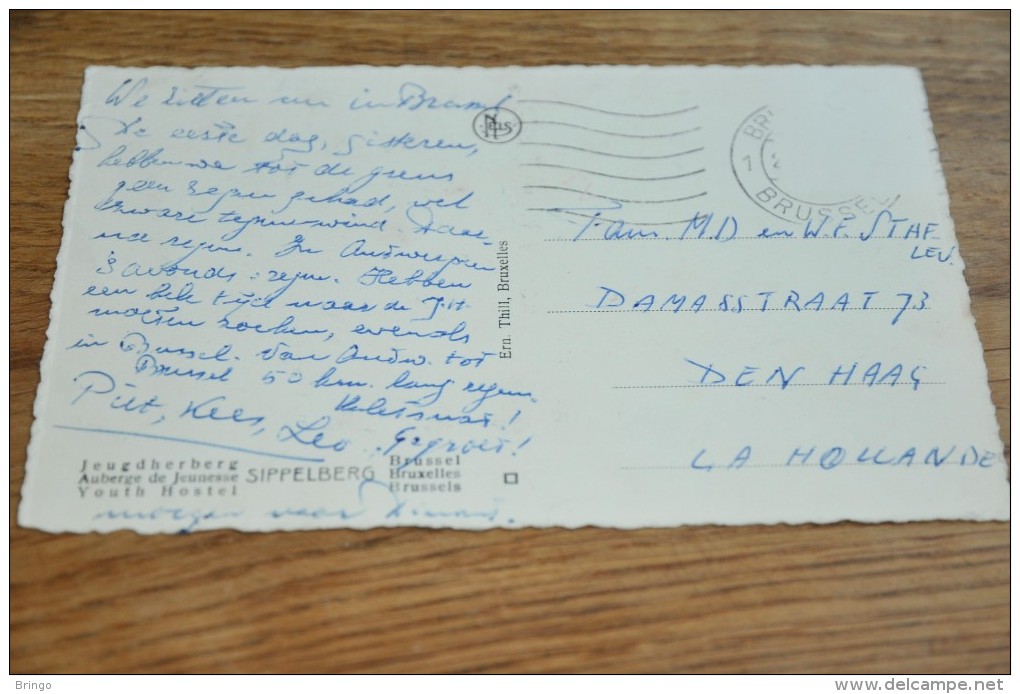 We zitten nu in Brussel
De eerste dag, gisteren,
hebben we tot de grens
geen regen gehad, wel
zware tegenwind. Daar-
na regen. In Antwerpen
's avonds: regen. Hebben
een hele tijd naar de J.H.
moeten zoeken, evenals
in Brussel. Van Antw. tot
Brussel 50 km. lang regen.
Kletsnat!
Piet, Kees, Leo. Gegroet!
Jeugdherberg
Auberge de Jeunesse
Youth Hostel
SIPPELBERG
Brussel
Bruxelles
Brussels
morgen naar Dinant.
NELS
Ern. Thill, Bruxelles
1
BRUSSEL
Fam. M.D en W.F. STAF
LEU.
DAMASSTRAAT 73
DEN HAAG
LA HOLLANDE
Bringo
www.delcampe.net